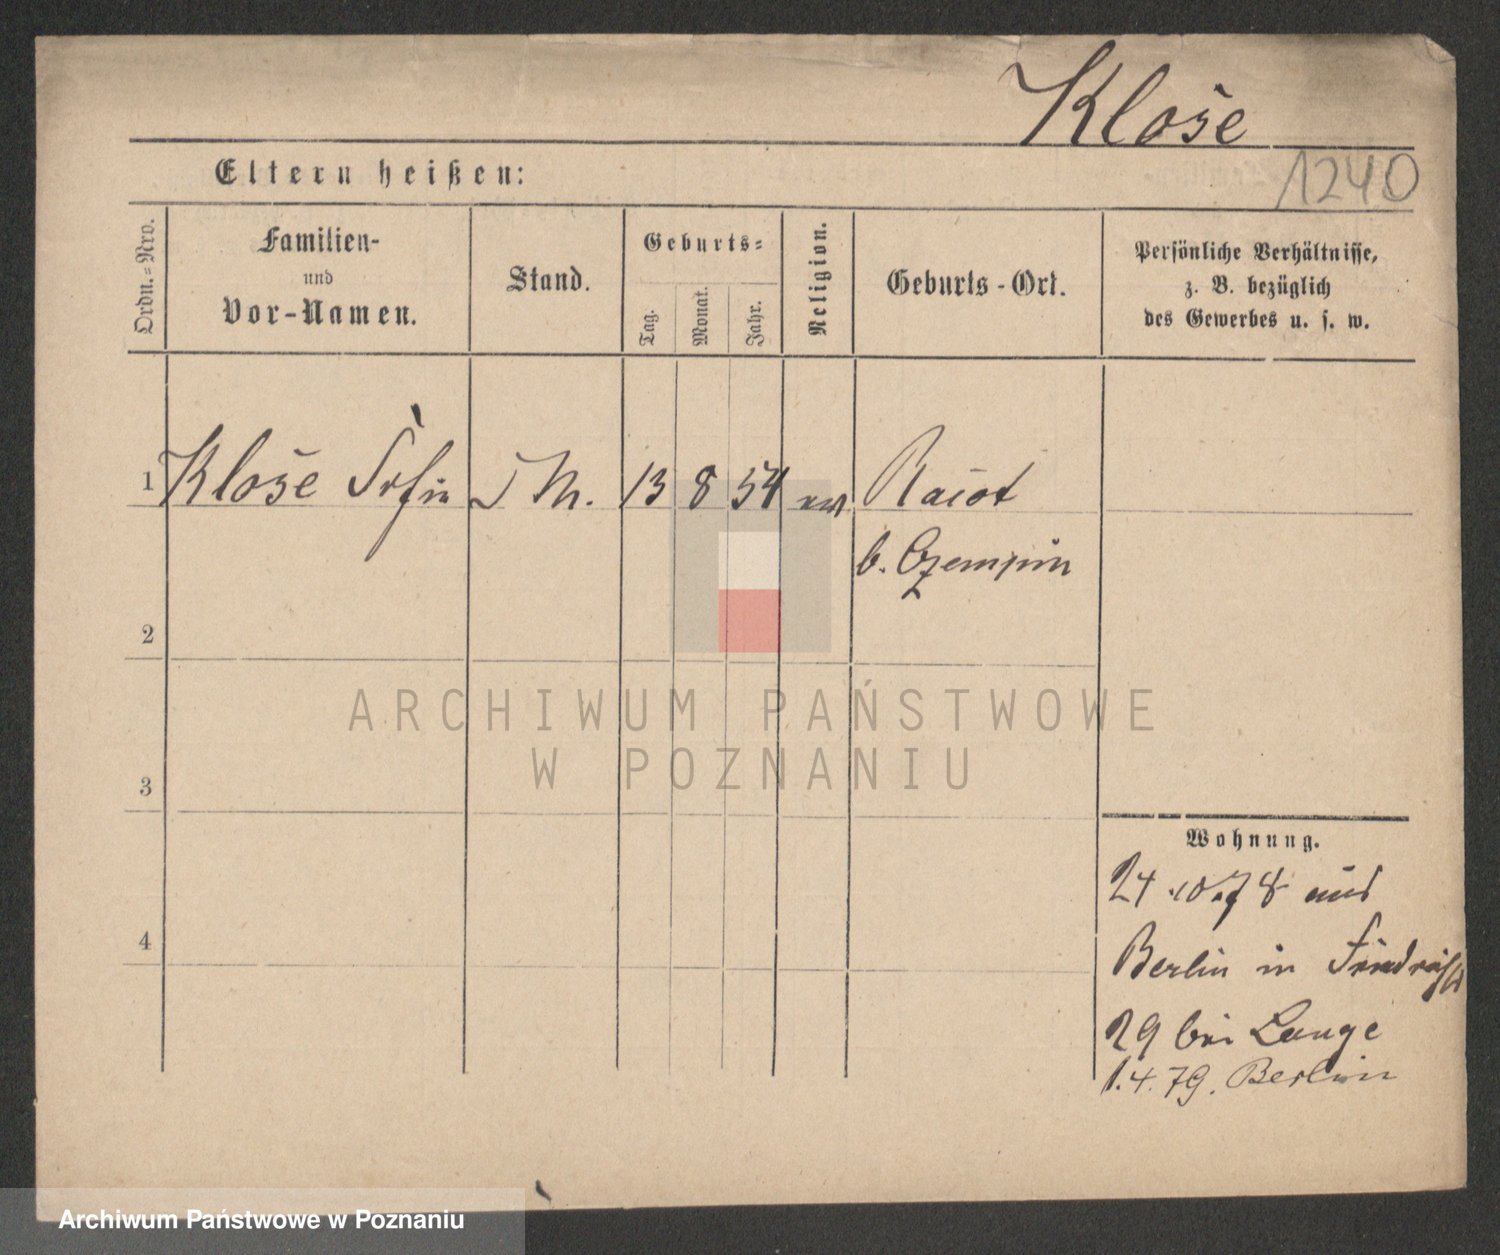 Klose
Eltern heißen:
1240
Ordn.=Nro.
Familien-
und
Vor-Namen.
Stand.
Geburts=
Tag.
Monat.
Jahr.
Religion.
Geburts-Ort.
Persönliche Verhältnisse,
z. B. bezüglich
des Gewerbes u. s. w.
1 Klose 13 8 54 Racot
b. Czempin
2
ARCHIWUM PAŃSTWOWE
W POZNANIU
3
Wohnung.
24.10.78 aus
4
Berlin in
29 bei Lange
1.4.79. Berlin
Archiwum Państwowe w Poznaniu